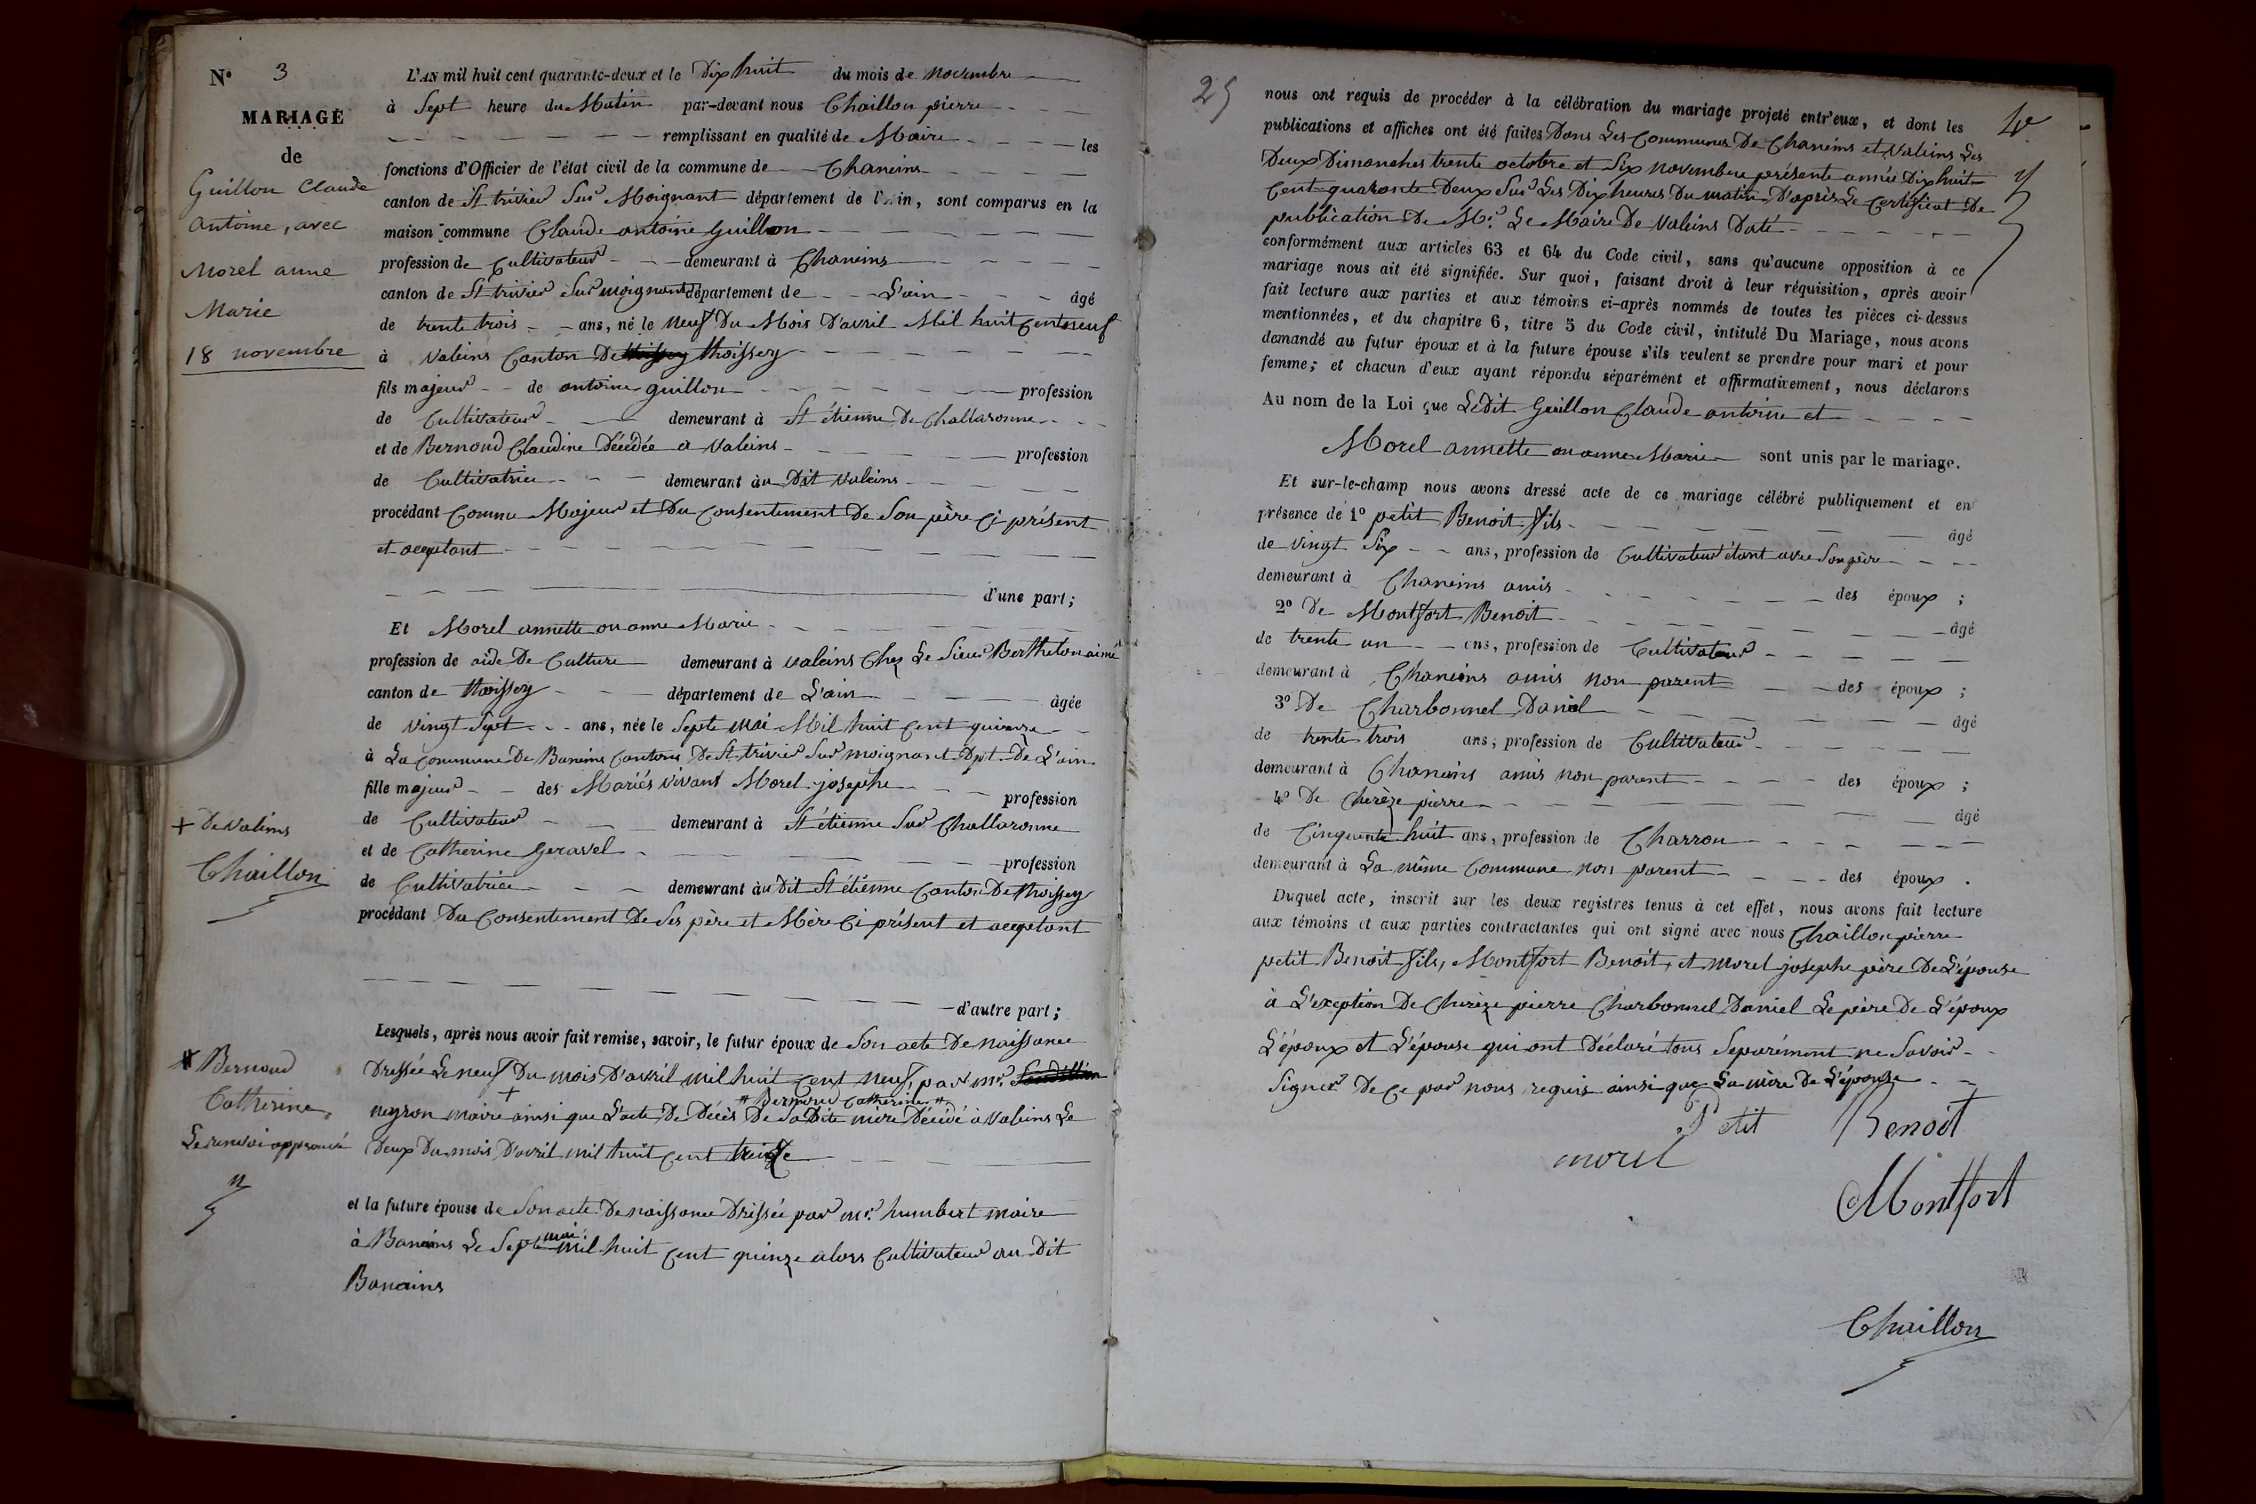 N° 3
MARIAGE
de
Guillon Claude
antoine, avec
Morel anne
Marie
18 novembre
L'AN mil huit cent quarante-deux et le Dix huit du mois de novembre
à Sept heure du Matin par-devant nous Chaillon pierre
remplissant en qualité de Maire les
fonctions d'Officier de l'état civil de la commune de Chaneins
canton de St trivier Sur Moignant département de l'Ain, sont comparus en la
maison commune Claude antoine Guillon
profession de Cultivateur demeurant à Chaneins
canton de St trivier Sur moignant département de L'ain âgé
de trente trois ans, né le neuf Du Mois D'avril Mil huit Cent neuf
à Valeins Canton De thoissey
fils majeur de antoine guillon profession
de Cultivateur demeurant à St étienne De Challaronne
et de Bernoud Claudine Décédée a Valeins profession
de Cultivatrice demeurant àu Dit Valeins
procédant Comme Majeur et Du Consentement De Son père Ci présent
et acceptant
d'une part;
Et Morel annette ou anne Marie
profession de aide De Culture demeurant à valeins Chez Le Sieur Berthelon aimé
canton de thoissey département de L'ain âgée
de vingt Sept ans, née le Septe mai Mil huit Cent quinze
à La Commune De Baneins Cantons De St trivier Sur moignant Dpt De L'ain
fille majeur des Mariés vivant Morel josephe profession
de Cultivateur demeurant à St étienne Sur Challaronne
et de Catherine geravel profession
de Cultivatrice demeurant àu Dit St étienne Canton De thoissey
procédant Du Consentement De Ses père et Mère Ci présent et acceptant
d'autre part;
+ De valeins
Chaillon
Lesquels, après nous avoir fait remise, savoir, le futur époux de Son acte De naissance
Dressée Le neuf Du mois D'avril mil huit Cent neuf, par mr.
neyron maire + ainsi que L'acte De Décés De Sa Dite # Bernoud Catherine # mère Décédé à Valeins Le
Deux Du mois D'avril mil huit Cent treize
# Bernoud
Catherine,
Le renvoi approuvé
et la future épouse de Son acte De naissance Dressée par mr. humbert maire
à Baneins Le Septe mai mil huit Cent quinze alors Cultivateur au Dit
Banains
25
nous ont requis de procéder à la célébration du mariage projeté entr'eux, et dont les
publications et affiches ont été faites Dans Les Communes De Chaneins et Valeins Les
Deux Dimanches trente octobre et Six novembre présente année Dix huit
Cent quarante Deux Sur Les Dix heures Du matin D'après Le Certificat De
publication De Mr. Le Maire De Valeins Daté
conformément aux articles 63 et 64 du Code civil, sans qu'aucune opposition à ce
mariage nous ait été signifiée. Sur quoi, faisant droit à leur réquisition, après avoir
fait lecture aux parties et aux témoins ci-après nommés de toutes les pièces ci-dessus
mentionnées, et du chapitre 6, titre 5 du Code civil, intitulé Du Mariage, nous avons
demandé au futur époux et à la future épouse s'ils veulent se prendre pour mari et pour
femme; et chacun d'eux ayant répondu séparément et affirmativement, nous déclarons
Au nom de la Loi que LeDit Guillon Claude antoine et
Morel annette ou anne Marie sont unis par le mariage.
Et sur-le-champ nous avons dressé acte de ce mariage célébré publiquement et en
présence de 1° petit Benoit fils âgé
de vingt Six ans, profession de Cultivateur étant avec Son père
demeurant à Chaneins amis des époux ;
2° De Montfort Benoit âgé
de trente un ans, profession de Cultivateur
demeurant à Chaneins amis non parent des époux ;
3° De Charbonnel Daniel âgé
de trente trois ans, profession de Cultivateur
demeurant à Chaneins amis non parent des époux ;
4° De Cherèze pierre âgé
de Cinquante huit ans, profession de Charron
demeurant à La même Commune non parent des époux .
Duquel acte, inscrit sur les deux registres tenus à cet effet, nous avons fait lecture
aux témoins et aux parties contractantes qui ont signé avec nous Chaillon pierre
petit Benoit fils, Montfort Benoit, et Morel josephe père De L'épouse
à L'exeption De Cherèze pierre Charbonnel Daniel Le père De L'époux
L'époux et L'épouse qui ont Déclaré tous Separément ne Savoir
Signer De Ce par nous requis ainsi que La mère De L'épouse
Petit Benoit
morel
Montfort
Chaillon